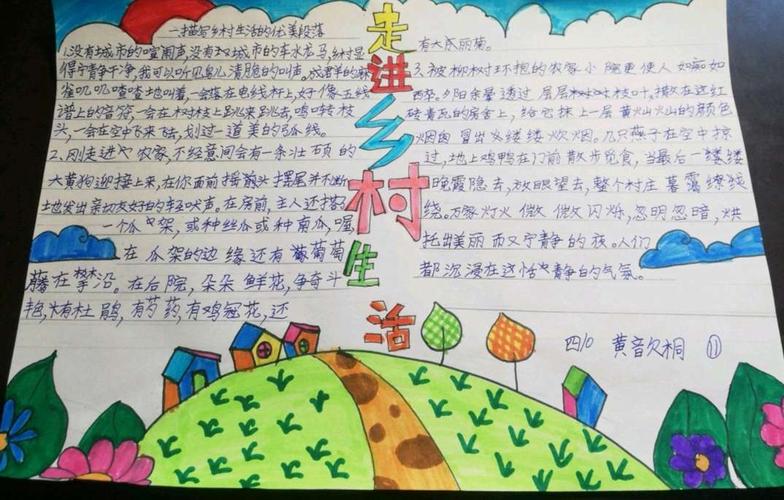 走进乡村生活
一描写乡村生活的优美段落
1.没有城市的喧闹声,没有城市的车水龙马,乡村显
得宁静干净,我可以听见鸟儿清脆的叫声,成群的麻
雀叽叽喳喳地叫着,一会落在电线杆上,好像五线
谱上的音符,一会在树枝上跳来跳去,鸣啭枝
头,一会在空中飞来飞去,划过一道美的弧线。
2.刚走进农家,不经意间会有一条壮硕的
大黄狗迎接上来,在你面前摇头摆尾并不断
地发出亲切友好的轻吠声。在房前,主人还搭
一个瓜架,或种丝瓜或种南瓜,喔
在瓜架的边缘还有葡萄
藤在攀沿。在后院,朵朵鲜花,争奇斗
艳,有杜鹃,有芍药,有鸡冠花,还
有大原丽菊。
3.被柳树环抱的农家小院更使人如痴如
醉。夕阳余晕透过层层树枝叶,撒在这红
砖青瓦的房舍上,给它抹上一层黄灿灿的颜色
烟囱冒出缕缕炊烟。几只燕子在空中掠
过,地上鸡鸭在门前散步觅食,当最后一缕缕
晚霞隐去,放眼望去,整个村庄暮霭缭
绕。万家灯火微微闪烁,忽明忽暗,烘
托出美丽而又宁静的夜。人们
都沉浸在这恬静的气氛。
四10 黄音欠桐 ⑪